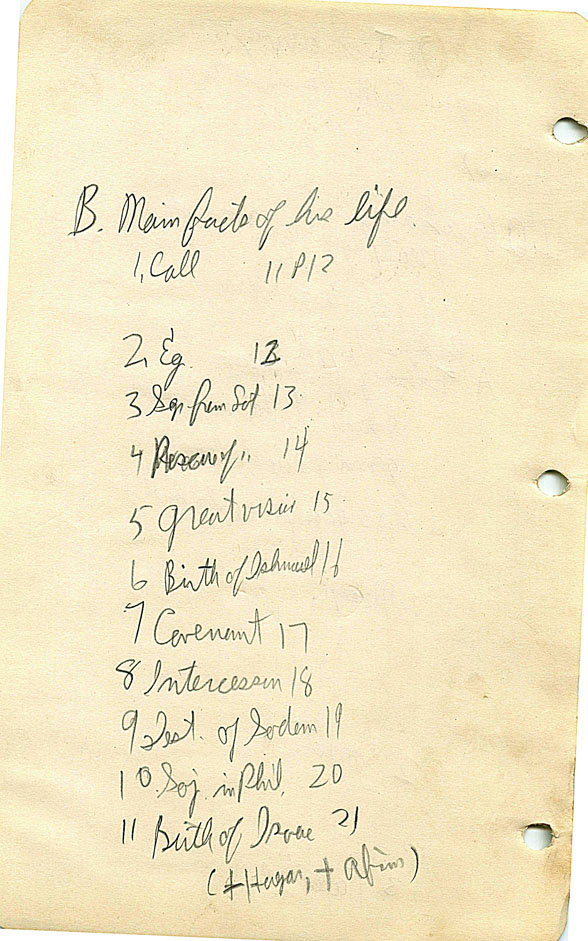 B. Main facts of his life.
1, Call 11 12
2, Eg. 12
3 Sep from Sot 13
4 Rescue of " 14
5 Great vision 15
6 Birth of Ishmael 16
7 Covenant 17
8 Intercession 18
9 Dest. of Sodom 19
10. Soj. in Phil. 20
11 Birth of Isaac 21
(+ Hagar, +